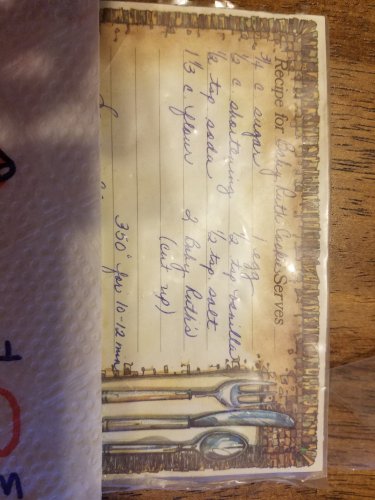 Recipe for Baby Ruth Cookies Serves
3/4 c sugar 1 egg
1/2 c shortening 1/2 tsp vanilla
1/2 tsp soda 1/2 tsp salt
1 1/3 c flour 2 Baby Ruths
(cut up)
350° for 10-12 mins